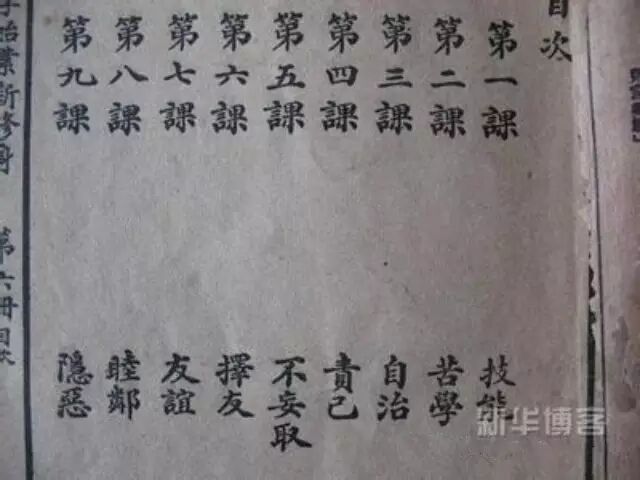 目次
第一課 技能
第二課 苦學
第三課 自治
第四課 責己
第五課 不妄取
第六課 擇友
第七課 友誼
第八課 睦鄰
第九課 隱惡
季始業新修身 第六冊目次
新华博客